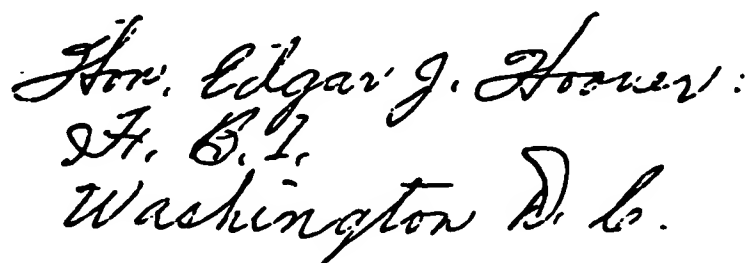 Hon. Edgar J. Hoover:
F. B. I.
Washington D. C.